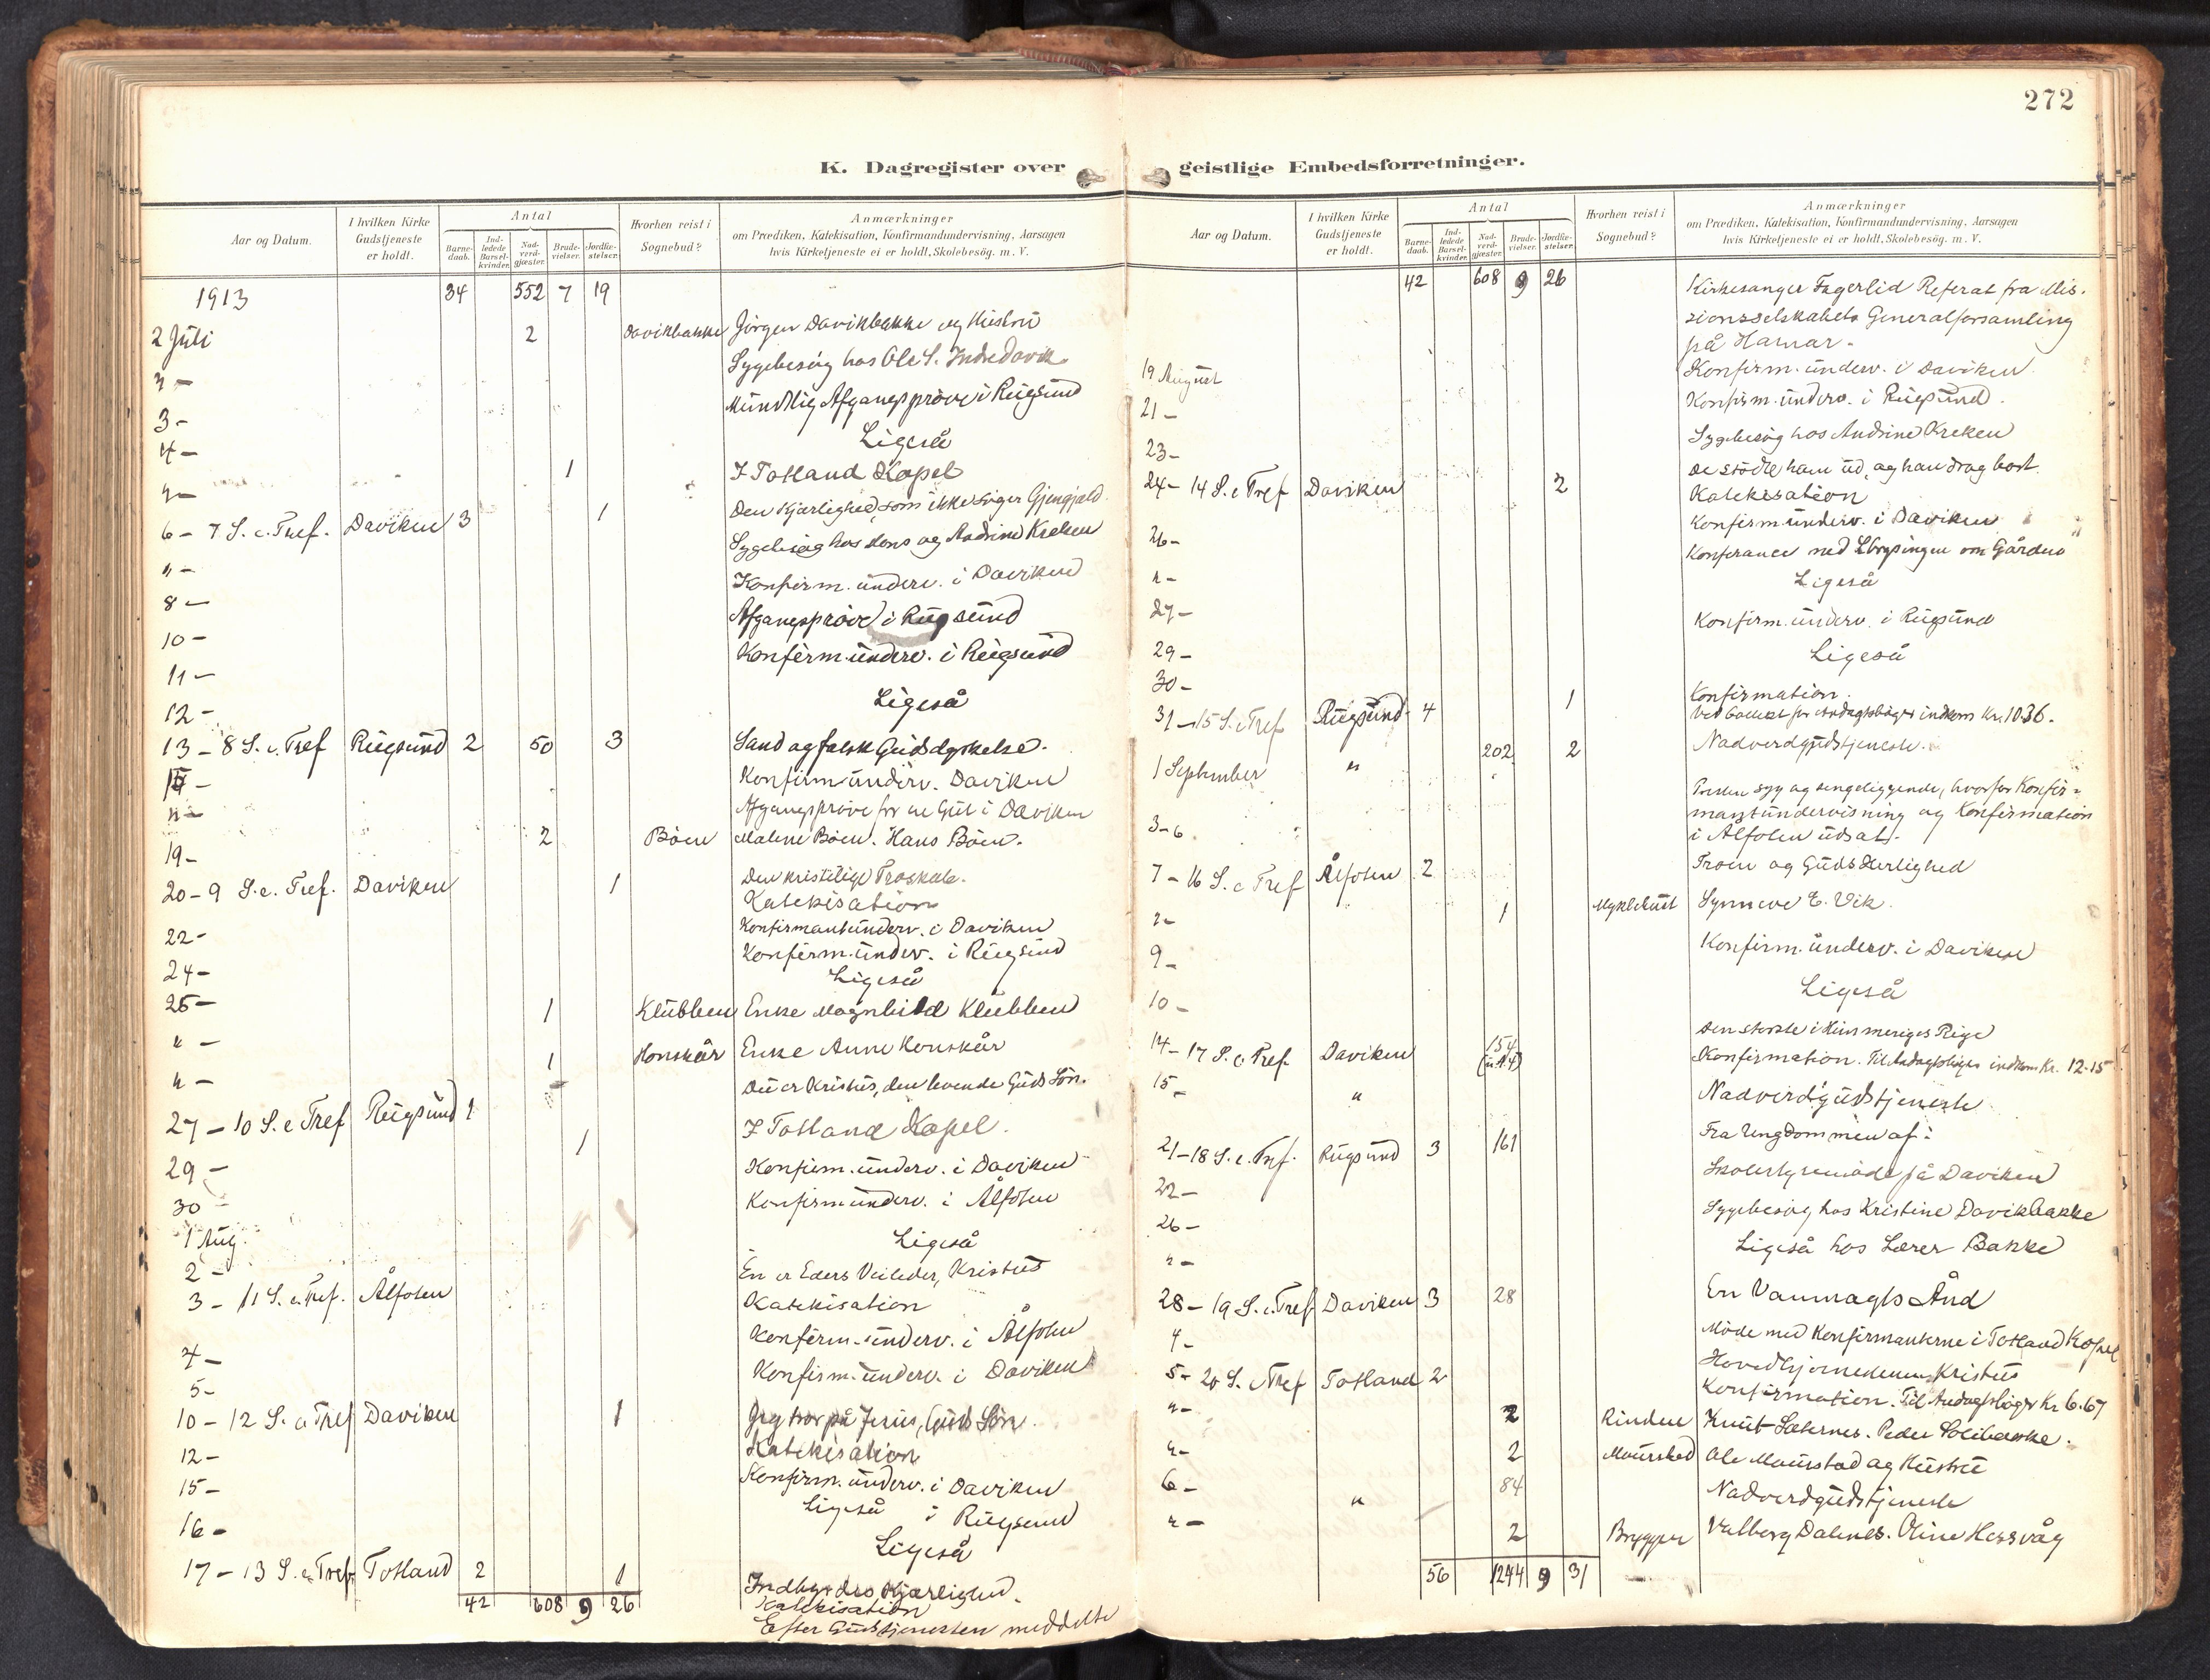 272
K. Dagregister over geistlige Embedsforretninger.
Aar og Datum.
I hvilken Kirke Gudstjeneste er holdt.
Antal
Barnedaab.
Indledede Barselkvinder.
Nadverdgjæster.
Brudevielser.
Jordfæstelser.
Hvorhen reist i Sognebud?
Anmærkninger
om Prædiken, Katekisation, Konfirmandundervisning, Aarsagen
hvis Kirketjeneste ei er holdt, Skolebesög. m. V.
1913 34 552 7 19
2 Juli 2 Davikbakke Jörgen Davikbakke og Hustru
" - Sygebesög hos Ole S. Indre Davik
3 - Mundtlig Afgangspröve i Rugsund
4 - Ligeså
" - 1 I Totland Kapel
6 - 7 S. e. Tref. Daviken 3 1 Den Kjærlighed, som ikke söger Gjengjæld.
" - Sygebesög hos Jens og Andrine Kreken
8 - Konfirm. underv. i Daviken
10 - Afgangspröve i Rugsund
11 - Konfirm. underv. i Rugsund
12 - Ligeså
13 - 8 S. e. Tref Rugsund 2 50 3 Sand og falsk Gudsdyrkelse.
15 - Konfirm underv. Daviken
" - Afgangspröve for en Gut i Daviken
19 - 2 Böen Malene Böen. Hans Böen.
20 - 9 S. e. Tref. Daviken 1 Den kristelige Troskab.
Katekisation
22 - Konfirmantunderv. i Daviken
24 - Konfirm. underv. i Rugsund
25 - Ligeså
" - 1 Klubben Enke Magnhild Klubben
" - 1 Honskår Enke Anne Honskår
27 - 10 S. e Tref Rugsund 1 Du er Kristus, den levende Guds Sön.
29 - 1 I Totland Kapel.
30 - Konfirm. underv. i Daviken
1 Aug. Konfirm underv. i Ålfoten
2 - Ligeså
3 - 11 S. e. Tref. Ålfoten En er Eders Veileder, Kristus
Katekisation
4 - Konfirm. underv. i Ålfoten
5 - Konfirm. underv. i Daviken
10 - 12 S. e Tref Daviken 1 Jeg tror på Jesus, Guds Sön.
Katekisation
12 - Konfirm. underv. i Daviken
15 - Ligeså i Rugsund
16 - Ligeså
17 - 13 S. e. Tref. Totland 2 1 Indbyrdes Kjærlighed.
Katekisation
42 608 9 26 Efter Gudstjenesten meddelte
Aar og Datum.
I hvilken Kirke Gudstjeneste er holdt.
Antal
Barnedaab.
Indledede Barselkvinder.
Nadverdgjæster.
Brudevielser.
Jordfæstelser.
Hvorhen reist i Sognebud?
Anmærkninger
om Prædiken, Katekisation, Konfirmandundervisning, Aarsagen
hvis Kirketjeneste ei er holdt, Skolebesög. m. V.
42 608 9 26 Kirkesanger Fagerlid Referat fra Mis-
sionsselskabets Generalforsamling
på Hamar.
19 August Konfirm. underv. i Daviken
21 - Konfirm. underv. i Rugsund.
23 - Sygebesög hos Andrine Kreken
24 - 14 S. e Tref Daviken 2 De stödte ham ud, og han drog bort.
Katekisation
26 - Konfirm underv. i Daviken
" - Konferance med om Gården
27 - Ligeså
29 - Konfirm. underv. i Rugsund
30 - Ligeså
31 - 15 S. e Tref Rugsund 4 1 Konfirmation.
Ved Collekt for Andagtsböger indkom Kr. 10.36.
1 September " 202 2 Nadverdgudstjeneste.
3-6. Presten syg og sengeliggende, hvorfor Konfir-
mantundervisning og Konfirmation
i Ålfoten udsat.
7 - 16 S. e Tref Ålfoten 2 Troen og Guds Herlighed
" - 1 Myklebust Synneve E. Vik.
9 - Konfirm. underv. i Daviken
10 - Ligeså
14 - 17 S. e. Tref. Daviken 154 Den störste i Himmeriges Rige
Konfirmation. Til Andagtsböger indkom Kr. 12.15
15 - " Nadverdgudstjeneste
21 - 18 S. e. Tref. Rugsund 3 161 Fra Ungdommen af:
22 - Skolestyremöde på Daviken
26 - Sygebesög hos Kristine Davikbakke
" - Ligeså hos Lærer Bakke
28 - 19 S. e. Tref Daviken 3 28 En Vanmagts Ånd
4 - Möde med Konfirmanterne i Totland Kapel
5 - 20 S. e Tref Totland 2 Hovedhjörnestenen Kristus
Konfirmation. Til Andagtsböger Kr 6.67
" - 2 Rinden Knut Sæternes. Peder
" - 2 Maurstad Ole Maurstad og Hustru
6 - " 84 Nadverdgudstjeneste
" - 2 Brygger Valborg Dalenes. Oline Hessvåg
56 1244 9 31